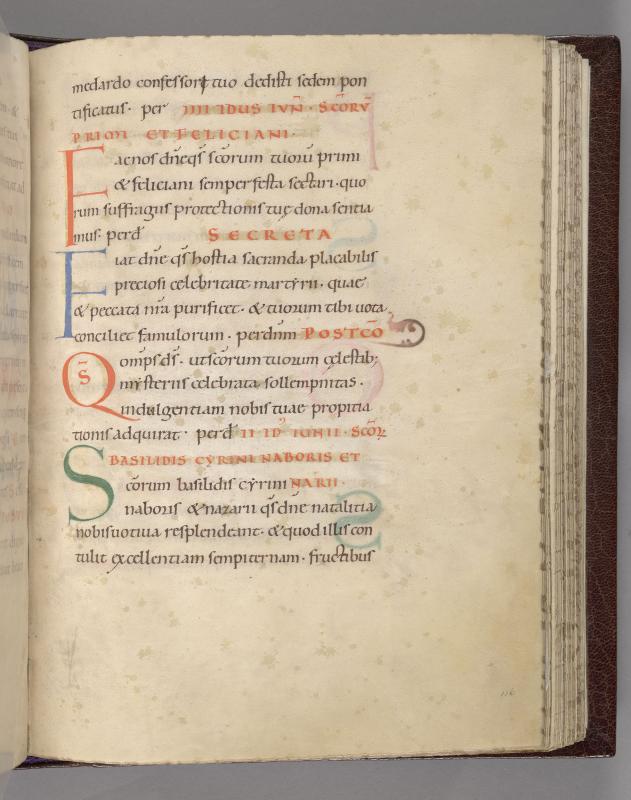 medardo confessori tuo dedisti sedem pon
tificatus· per IIII IDUS IVN̄· S̄CORV̄
PRIMI ET FELICIANI·
Fac nos dn̄e qs̄ sc̄orum tuorū primi
& feliciani semper festa sectari· quo
rum suffragiis protectionis tuę dona sentia
mus· per d̄
SECRETA
Fiat dn̄e qs̄ hostia sacranda placabilis
preciosi celebritate martyrii· quae
& peccata nr̄a purificet· & tuorum tibi uota
conciliet famulorum· per dnm̄ POSTCŌ
Qs̄ omps̄ ds̄· ut sc̄orum tuorum cęlestib;
mysteriis celebrata sollempnitas·
indulgentiam nobis tuae propitia
tionis adquirat· per d̄ II ID' IUNII· S̄COR̄
BASILIDIS CYRINI NABORIS ET
NAZARII·
Sc̄orum basilidis cyrini
naboris & nazarii qs̄ dn̄e natalitia
nobis uotiua resplendeant· & quod illis con
tulit excellentiam sempiternam· fructibus